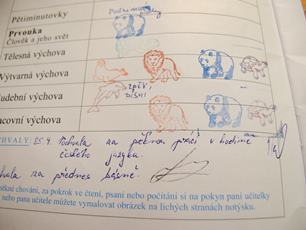 Pětiminutovky
Prvouka
Člověk a jeho svět
Tělesná výchova
Výtvarná výchova
Hudební výchova
ZPĚV,
PÍSNĚ
Pracovní výchova
CHVÁLY: 25.4. Pochvala za pěknou práci v hodině
českého jazyka.
za přednes básně.
chování, za pokrok ve čtení, psaní nebo počítání si na pokyn paní učitelky
nebo pana učitele můžete vymalovat obrázek na lichých stranách notýsku.